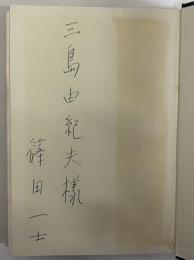 三島由紀夫様
篠田一士